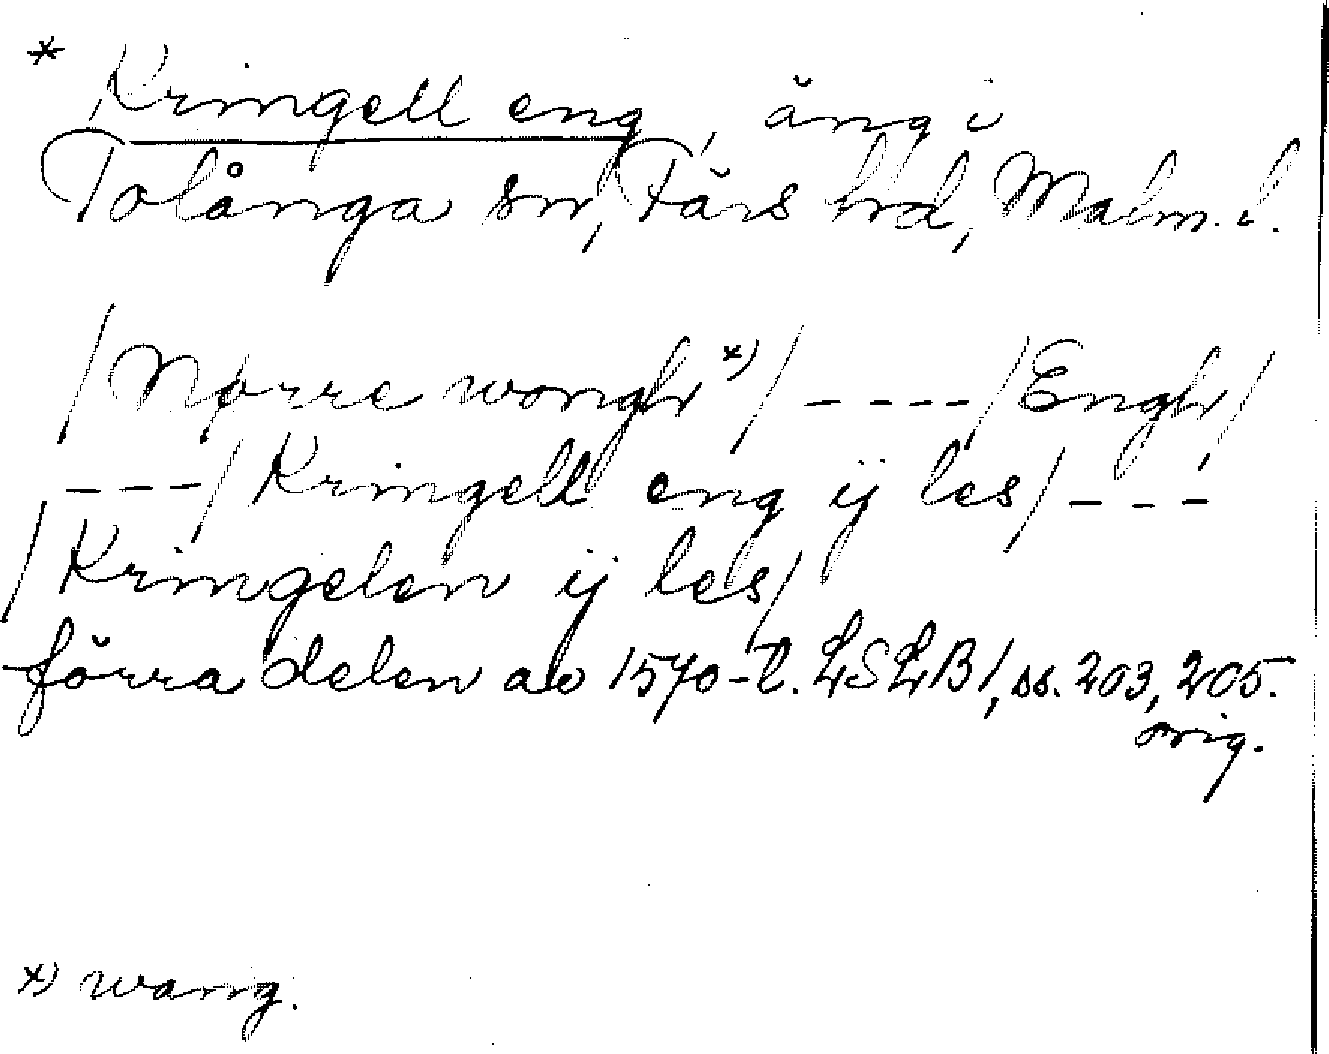 * Kringell eng, äng i
Tolånga sn, Färs hd, Malm. l.
/Nørre wongh *)/ ---- /Engh,/
---/ Kringell eng ij les/ ---
/Kringelen ij les/
förra delen av 1570-t. LSLB 1, ss. 203, 205.
orig.
*) wang.